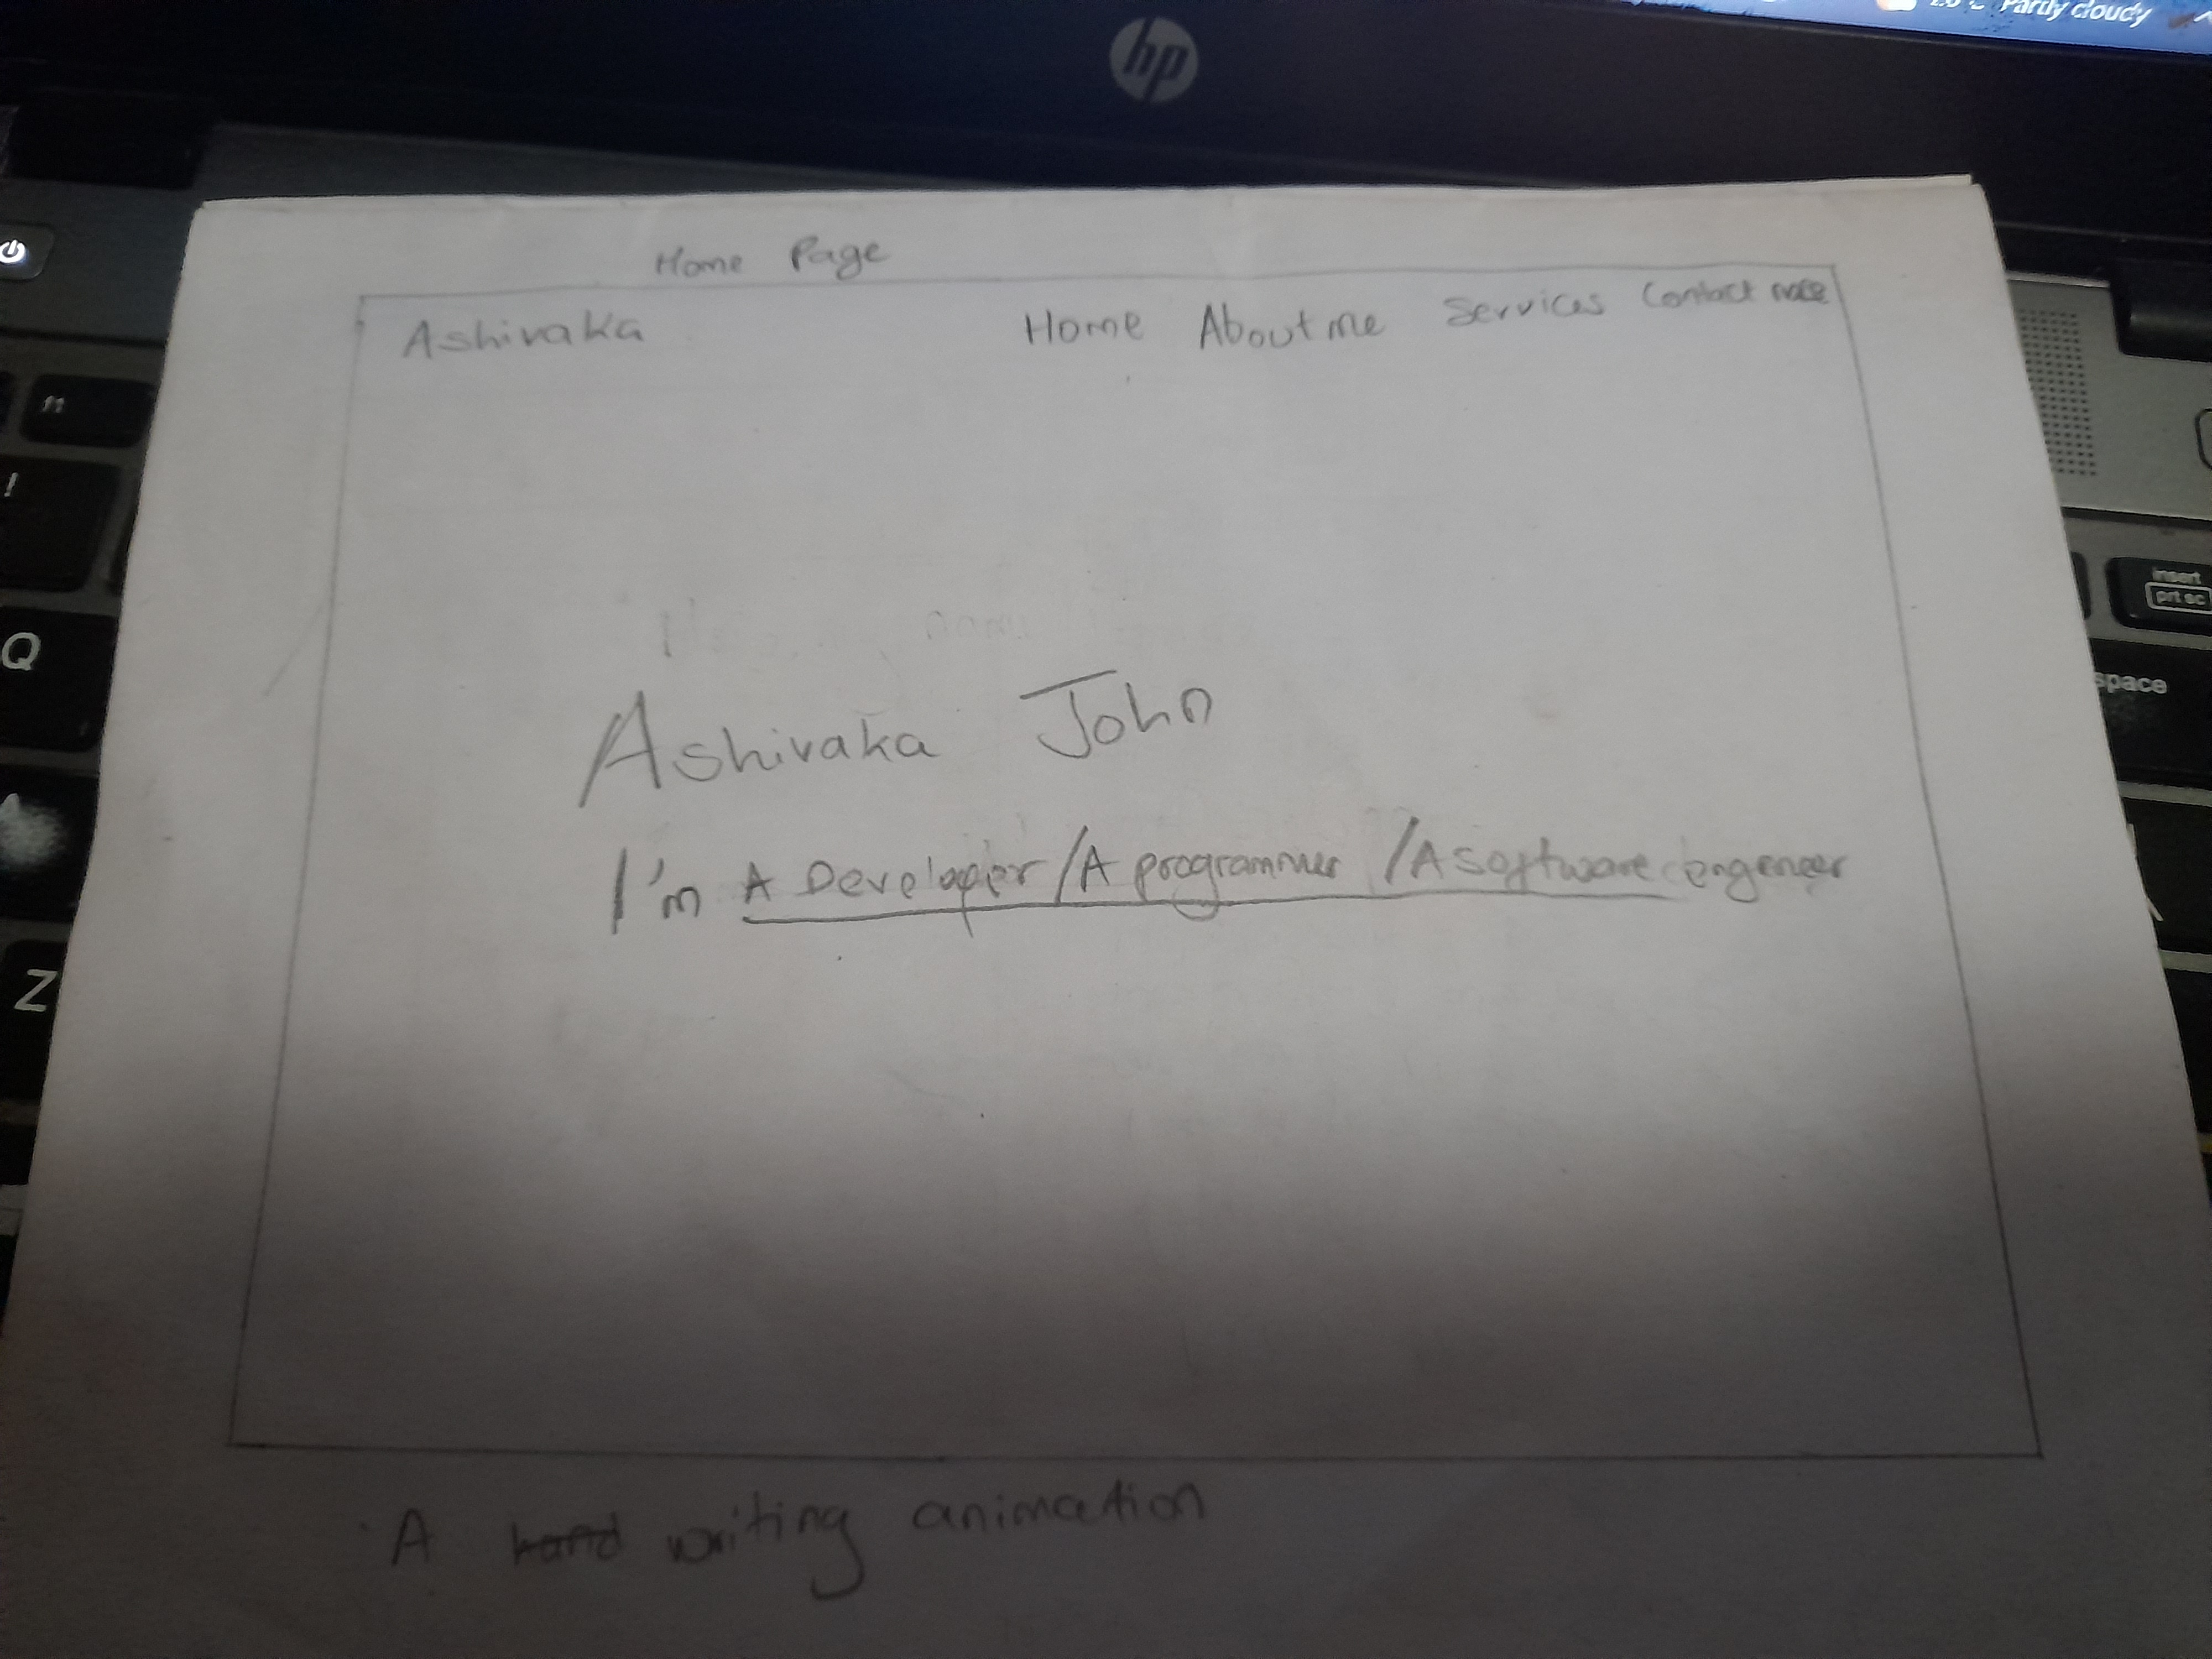 Partly cloudy
hp
Home Page
Ashivaka Home About me Services Contact
Ashivaka John
I'm A Developer /A programmer /A software engeneer
A writing animation
f1
!
Q
A
Z
insert
prt sc
space